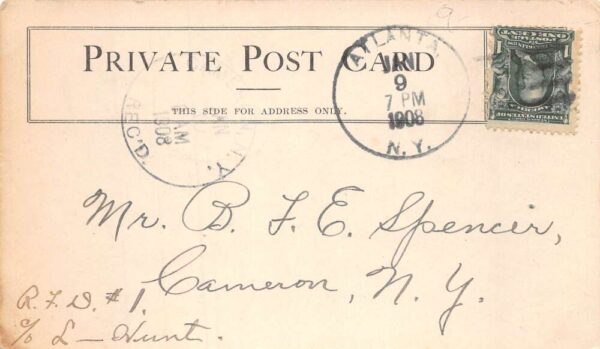 9
PRIVATE POST CARD
THIS SIDE FOR ADDRESS ONLY.
ATLANTA
JAN
9
7 PM
1908
N.Y.
N.Y.
AM
1908
REC'D.
Mr. B. F. E. Spencer,
Cameron, N. Y.
R. F. D. #1,
c/o L - Hunt.